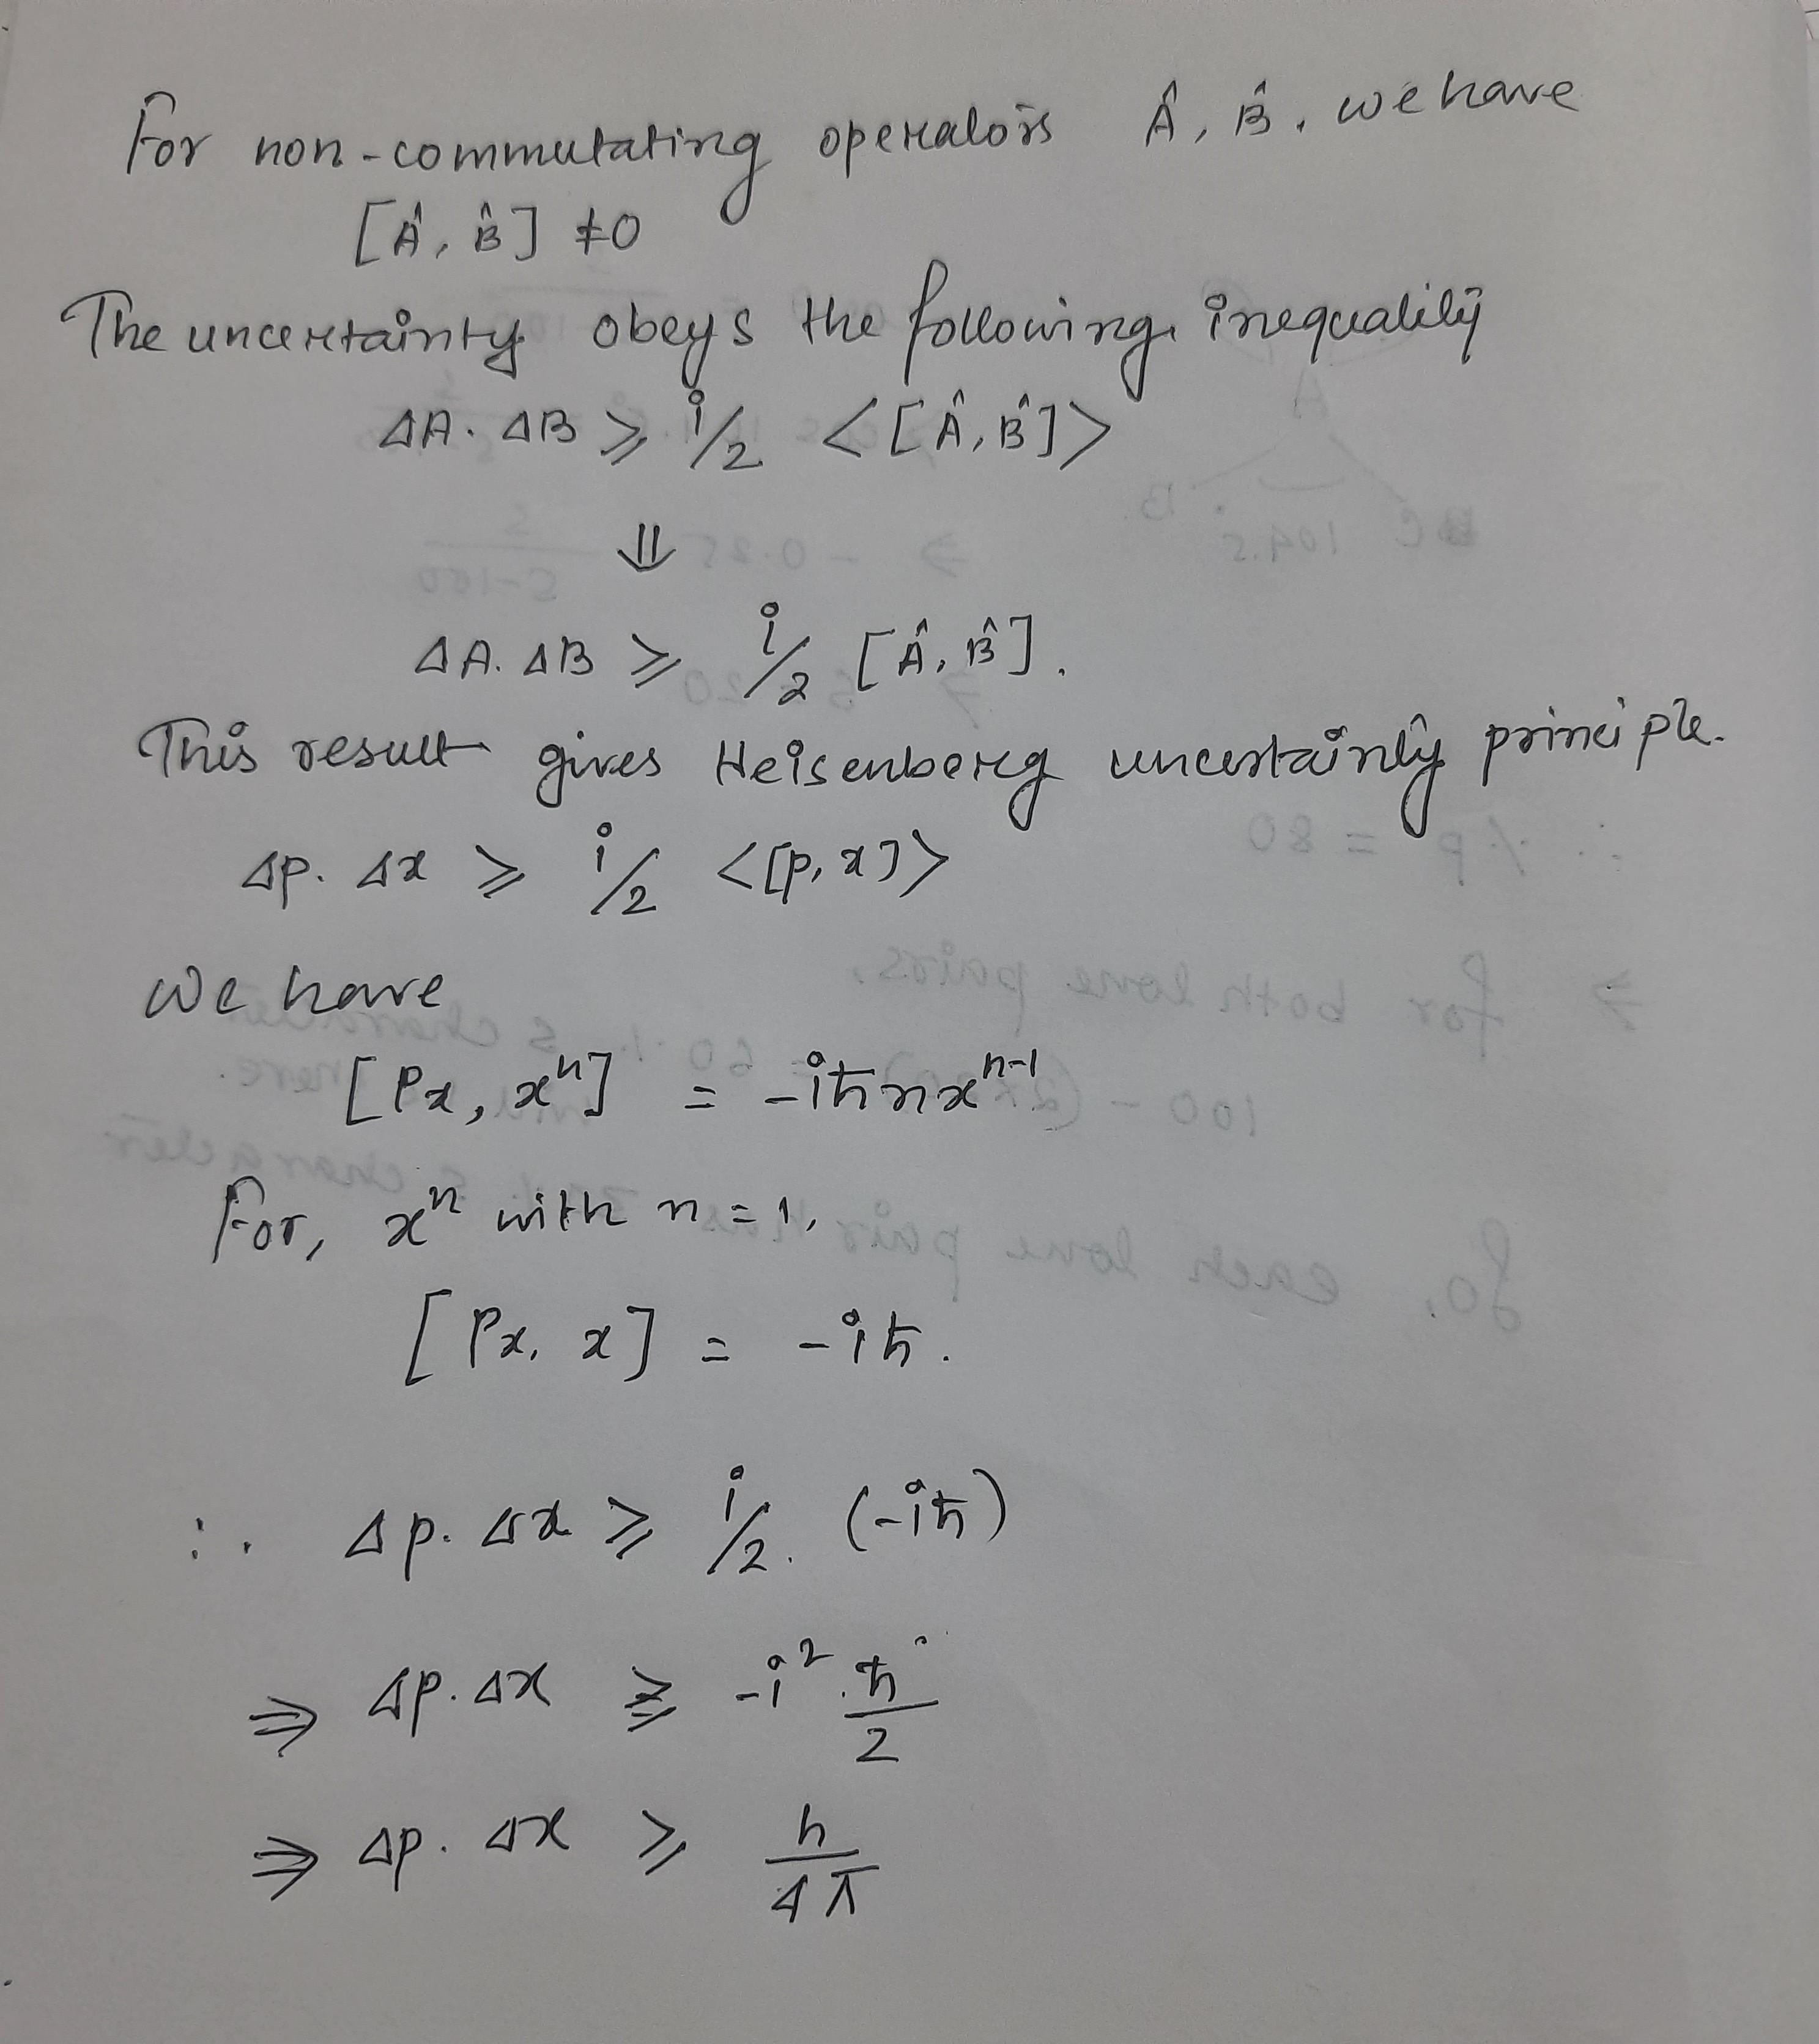 For non-commutating operators Â, B̂, we have
[Â, B̂] ≠ 0
The uncertainty obeys the following inequality
ΔA. ΔB ⩾ i/2 <[Â, B̂]>
⇓
ΔA. ΔB ⩾ i/2 [Â, B̂].
This result gives Heisenberg uncertainty principle.
Δp. Δx ⩾ i/2 <[p, x]>
We have
[Px, xⁿ] = -iħnxⁿ⁻¹
For, xⁿ with n = 1,
[Px, x] = -iħ.
∴ Δp. Δx ⩾ i/2. (-iħ)
⇒ Δp. Δx ⩾ -i². ħ/2
⇒ Δp. Δx ⩾ h/4π